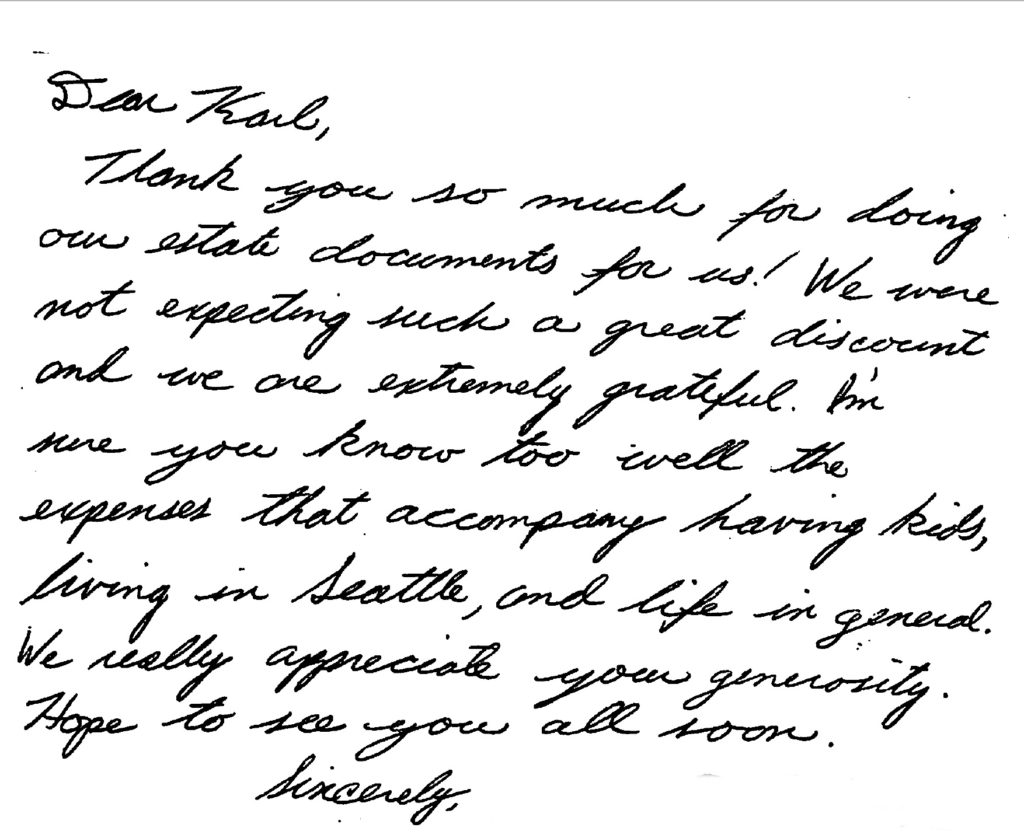 Dear Karl,
Thank you so much for doing
our estate documents for us! We were
not expecting such a great discount
and we are extremely grateful. I'm
sure you know too well the
expenses that accompany having kids,
living in Seattle, and life in general.
We really appreciate your generosity.
Hope to see you all soon.
Sincerely,